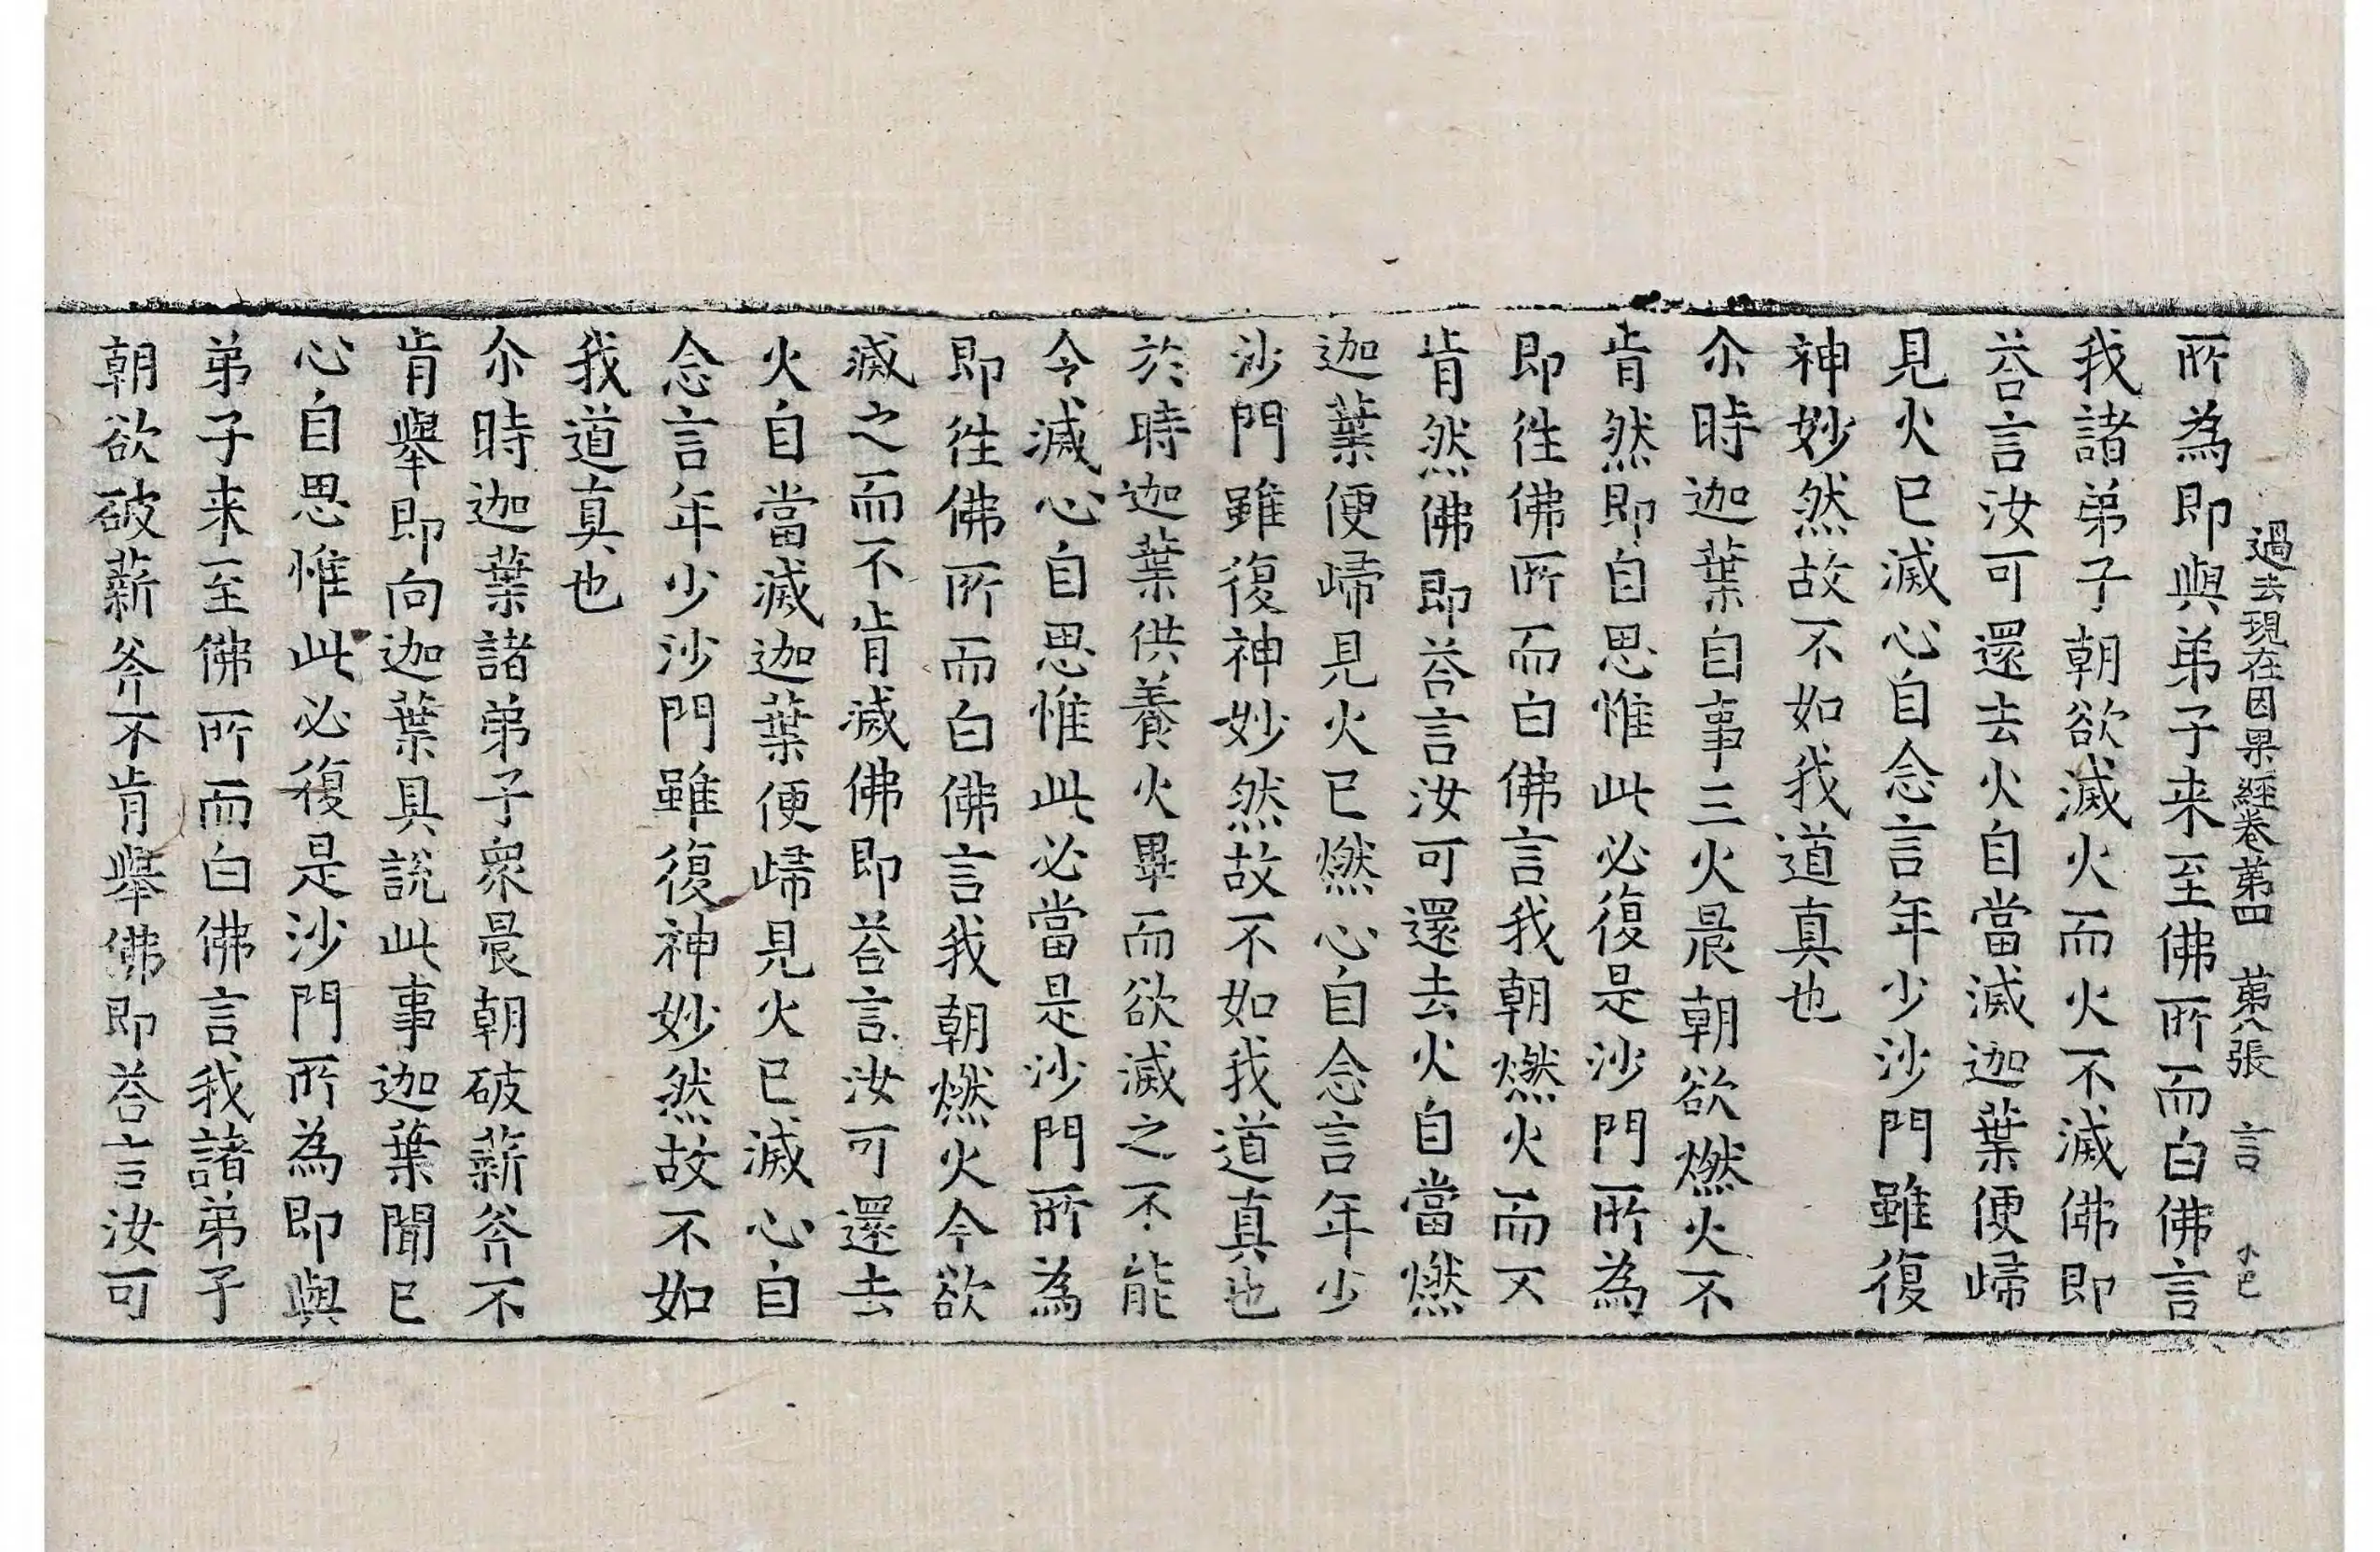 過去現在因果經卷苐四　苐八張　言
所為即與弟子来至佛所而白佛言
我諸弟子朝欲滅火而火不滅佛即
荅言汝可還去火自當滅迦葉便歸
見火已滅心自念言年少沙門雖復
神妙然故不如我道真也
尒時迦葉自事三火晨朝欲燃火不
肯然即自思惟此必復是沙門所為
即往佛所而白佛言我朝燃火而不
肯然佛即荅言汝可還去火自當燃
迦葉便歸見火已燃心自念言年少
沙門雖復神妙然故不如我道真也
於時迦葉供養火畢而欲滅之不能
令滅心自思惟此必當是沙門所為
即往佛所而白佛言我朝燃火今欲
滅之而不肯滅佛即荅言汝可還去
火自當滅迦葉便歸見火已滅心自
念言年少沙門雖復神妙然故不如
我道真也
尒時迦葉諸弟子衆晨朝破薪斧不
肯舉即向迦葉具說此事迦葉聞已
心自思惟此必復是沙門所為即與
弟子来至佛所而白佛言我諸弟子
朝欲破薪斧不肯舉佛即荅言汝可